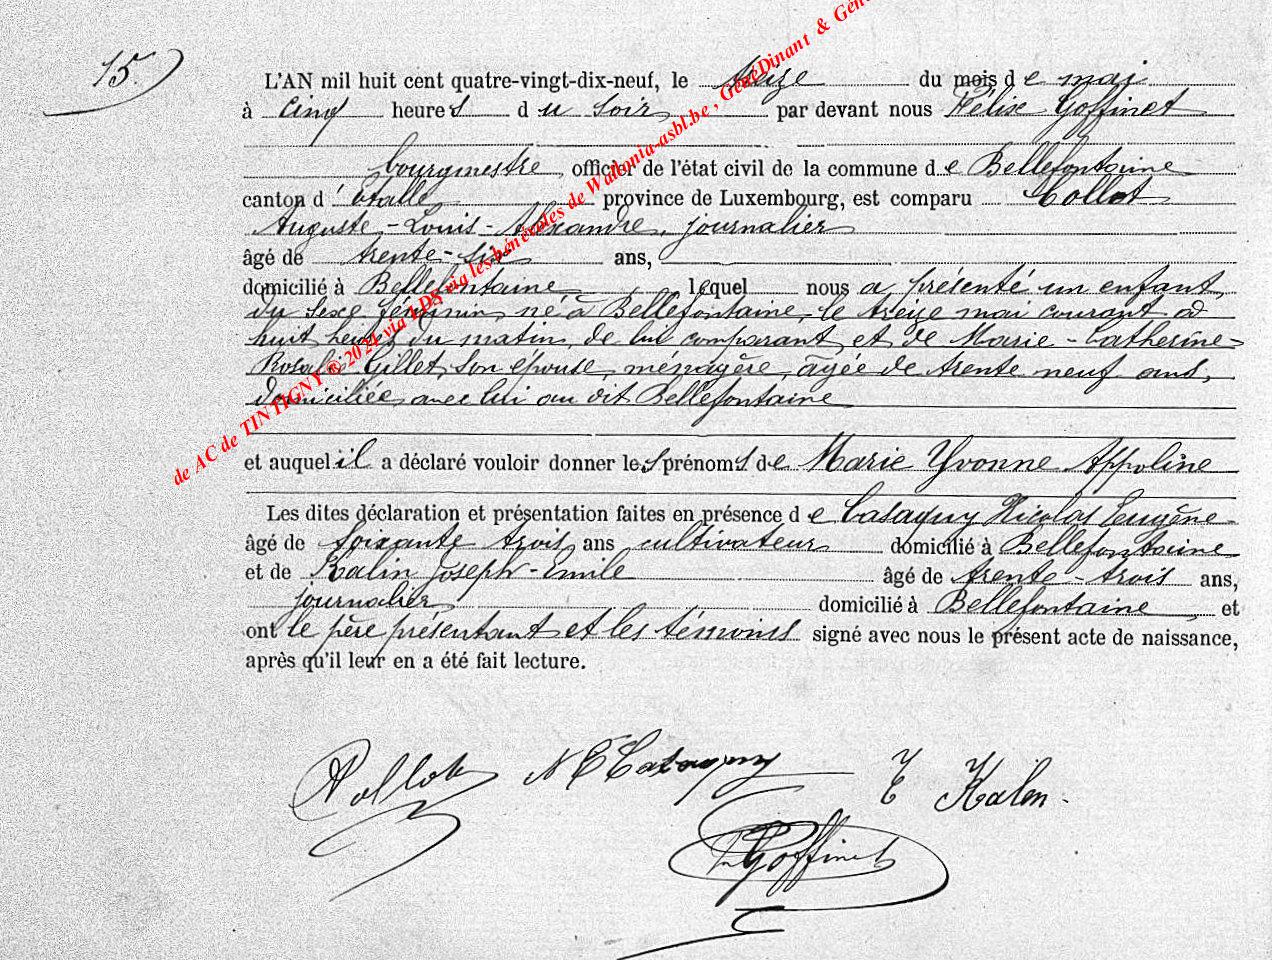 15.
L'AN mil huit cent quatre-vingt-dix-neuf, le treize du mois de mai
à cinq heures du soir par devant nous Félix Goffinet
bourgmestre, officier de l'état civil de la commune de Bellefontaine
canton d'Etalle province de Luxembourg, est comparu Collot
Auguste-Louis-Alexandre, journalier
âgé de trente-six ans,
domicilié à Bellefontaine lequel nous a présenté un enfant
du sexe féminin, né à Bellefontaine, le treize mai courant à
huit heures du matin, de lui comparant et de Marie-Catherine-
Rosalie Gillet, son épouse, ménagère, âgée de trente neuf ans,
domiciliée avec lui au dit Bellefontaine
et auquel il a déclaré vouloir donner les prénoms de Marie Yvonne Appoline
Les dites déclaration et présentation faites en présence de Casagny Nicolas Eugène
âgé de soixante trois ans cultivateur domicilié à Bellefontaine
et de Kalin Joseph-Emile âgé de trente-trois ans,
journalier domicilié à Bellefontaine et
ont le père présentant et les témoins signé avec nous le présent acte de naissance,
après qu'il leur en a été fait lecture.
Collot N E Casagny E Kalen
Goffinet
de AC de TINTIGNY © 2024 via LDS via les bénévoles de Wallonia-asbl.be , GénéDinant & Géné